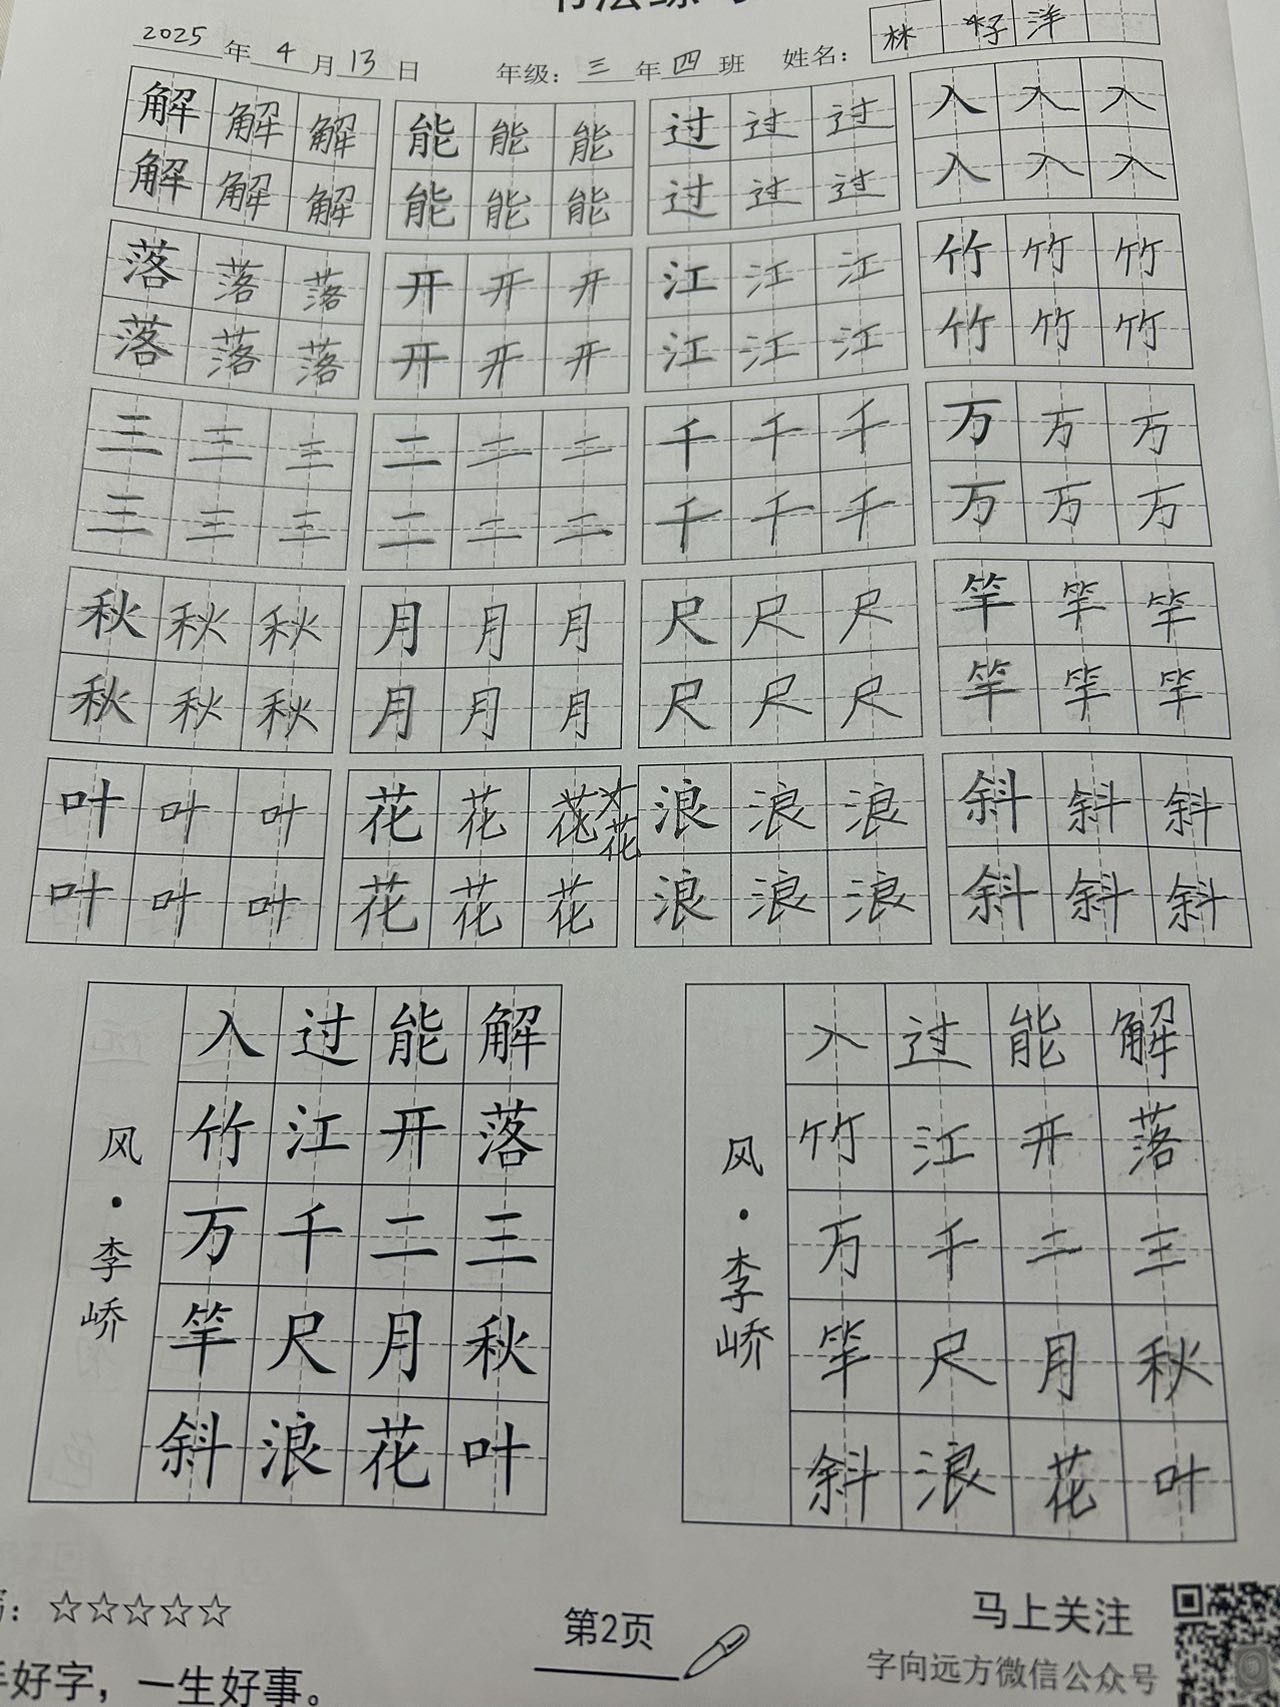 2025年4月13日 年级：三年四班 姓名：林籽洋
解解解 能能能 过过过 入入入
解解解 能能能 过过过 入入入
落落落 开开开 江江江 竹竹竹
落落落 开开开 江江江 竹竹竹
三三三 二二二 千千千 万万万
三三三 二二二 千千千 万万万
秋秋秋 月月月 尺尺尺 竿竿竿
秋秋秋 月月月 尺尺尺 竿竿竿
叶叶叶 花花花花 浪浪浪 斜斜斜
叶叶叶 花花花 浪浪浪 斜斜斜
解落三秋叶
能开二月花
过江千尺浪
入竹万竿斜
风·李峤
解落三秋叶
能开二月花
过江千尺浪
入竹万竿斜
风·李峤
：☆☆☆☆☆
第2页
马上关注
字向远方微信公众号
好字，一生好事。